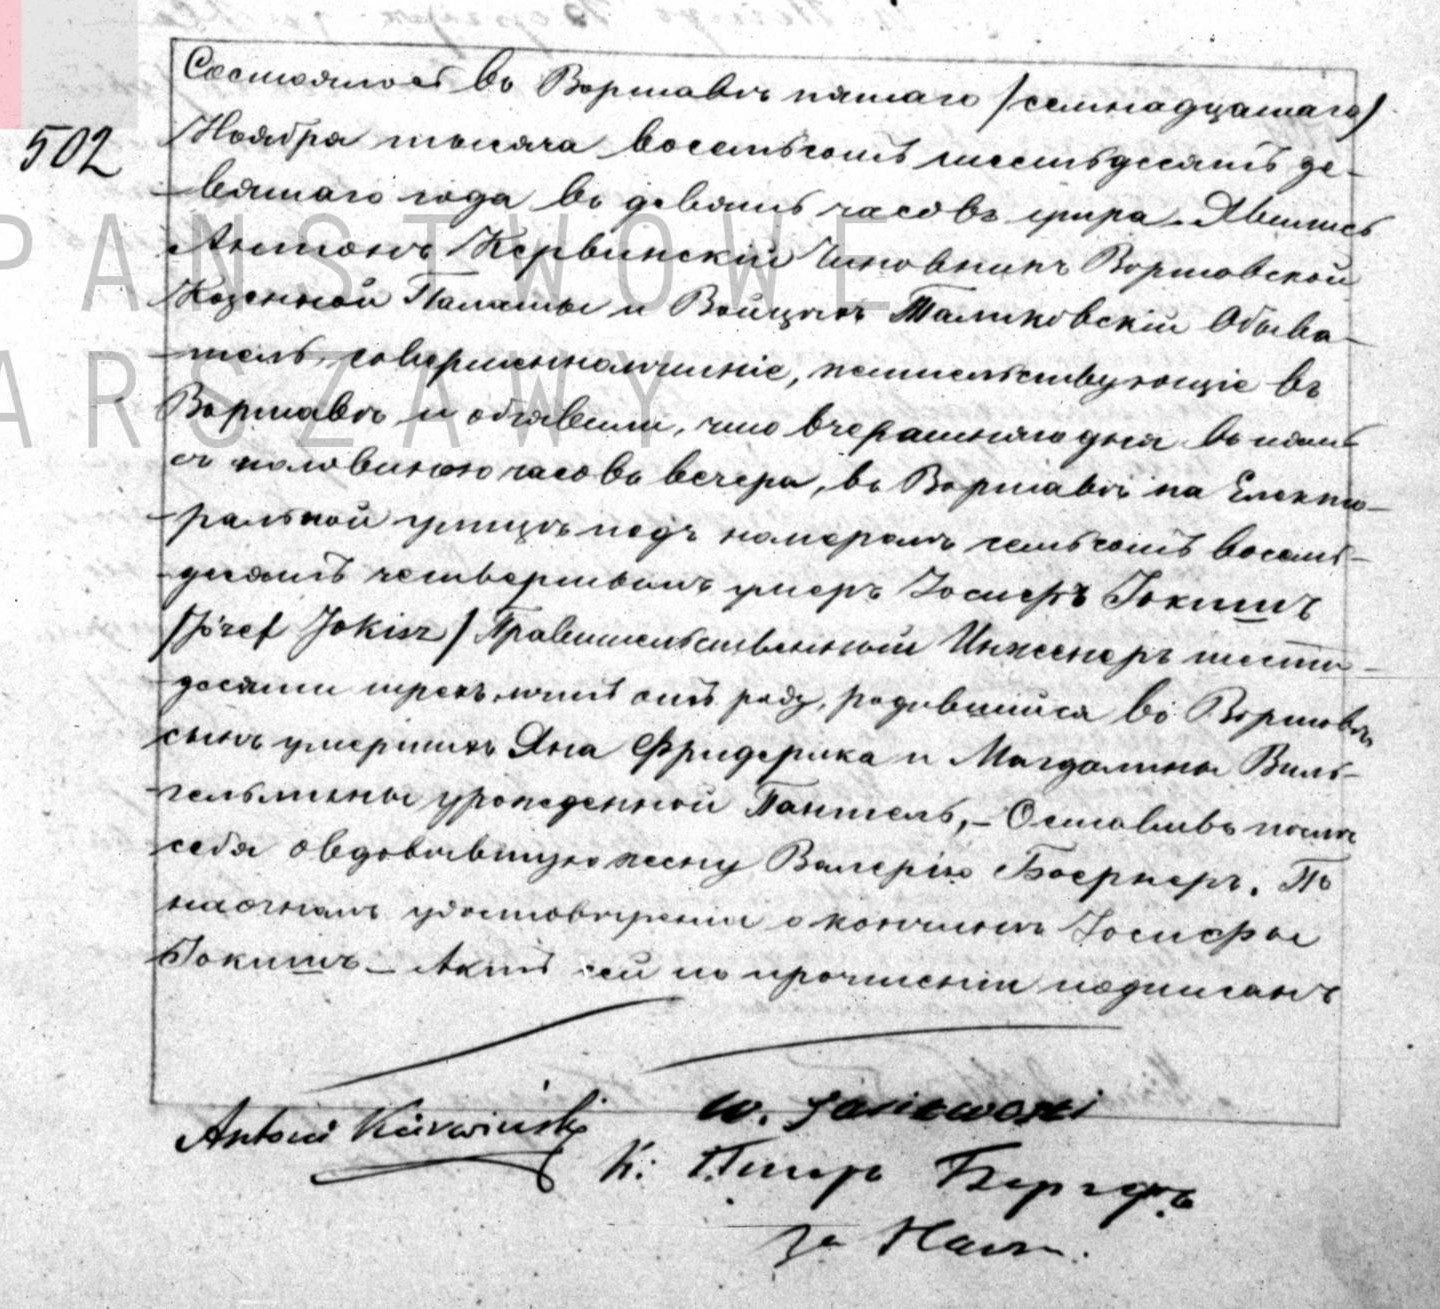 502
Состоялось въ Варшавѣ пятаго /семнадцатаго/
Ноября тысяча восемьсотъ шестьдесятъ де-
вятаго года въ девять часовъ утра. Явились
Антонъ Кервинскій Чиновникъ Варшавской
Казенной Палаты и Войцѣхъ Обыва-
тель, совершеннолѣтніе, жительствующіе въ
Варшавѣ и объявили, что вчерашняго дня въ пять
съ половиною часовъ вечера, въ Варшавѣ на Електо-
ральной улицѣ подъ номеромъ семьсотъ восемь-
десятъ четвертымъ умеръ Іосифъ Іокишъ
/Józef Jokisz/ Правительственный Инженеръ шести-
десяти трехъ лѣтъ отъ роду, родившійся въ Варшавѣ
сынъ умершихъ Яна Фридерика и Магдалины Виль-
гельмины урожденной Пантель, – Оставивъ послѣ
себя овдовѣвшую жену Валерію Боернеръ. По
наочномъ удостовѣреніи о кончинѣ Іосифа
Іокишъ – Актъ сей по прочтеніи подписанъ
Antoni Kierwiński W.
К. Петръ
за Наст.
PAŃSTWOWE
WARSZAWY